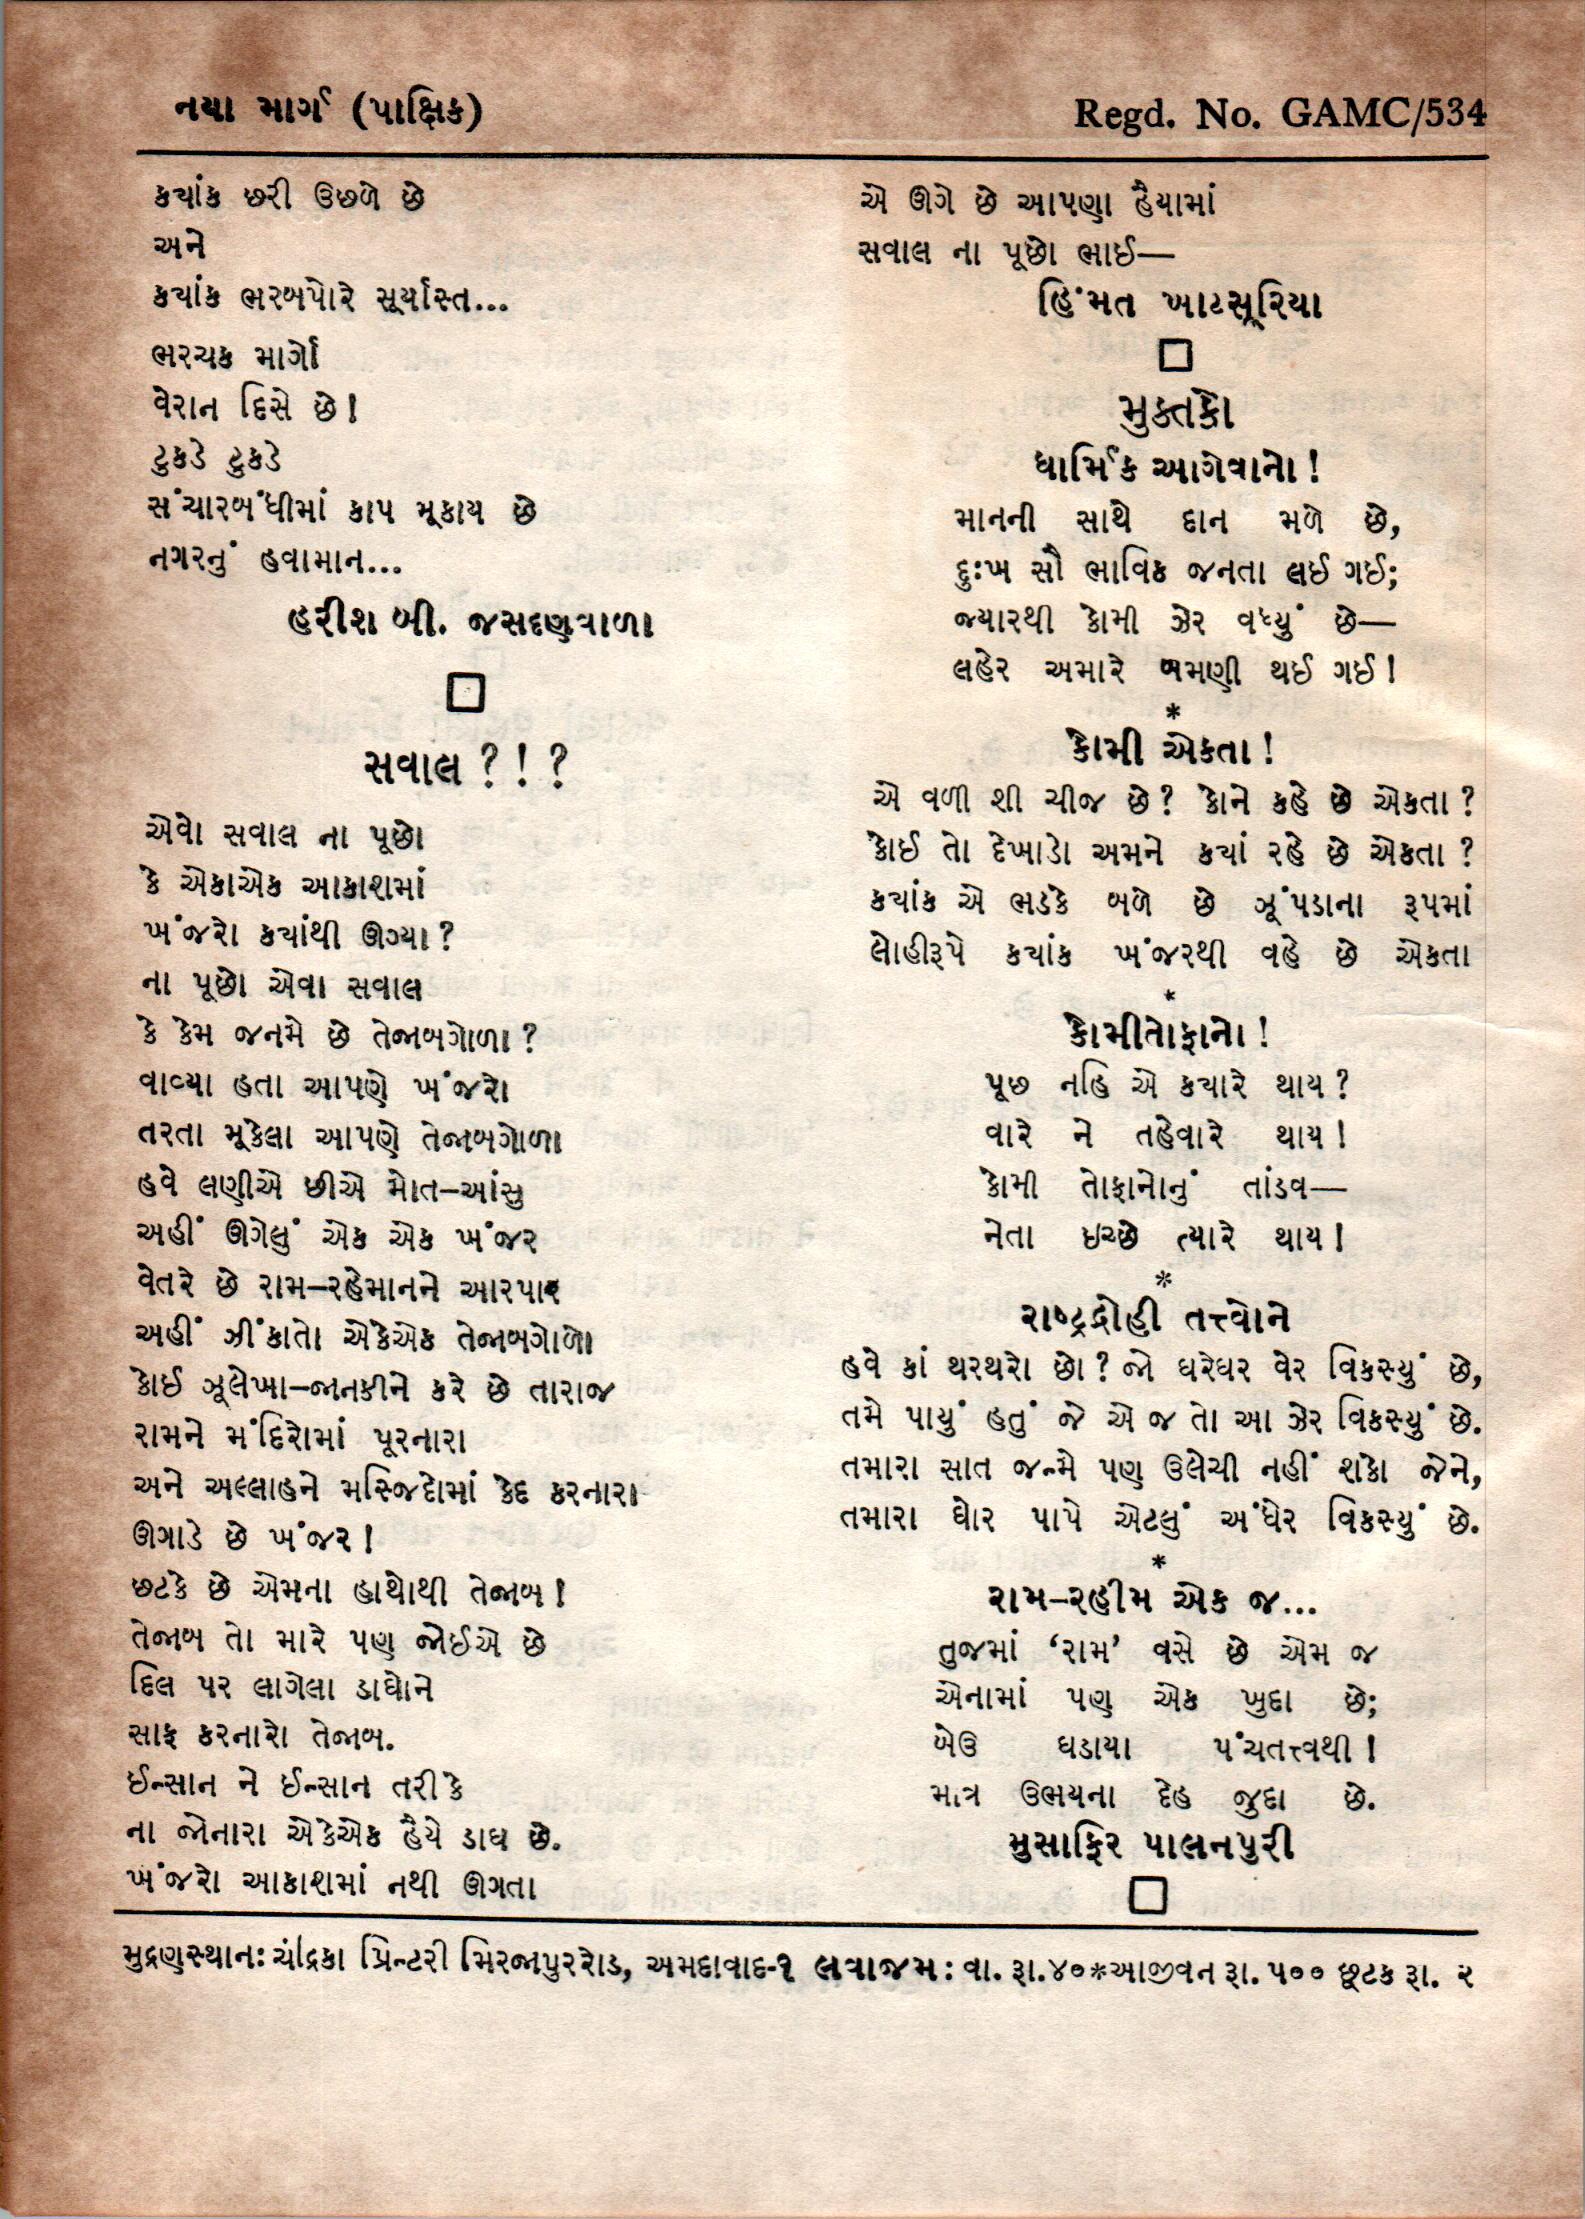 નયા માર્ગ (પાક્ષિક)
Regd. No. GAMC/534
કયાંક છરી ઉછળે છે
અને
કયાંક ભરબપોરે સૂર્યાસ્ત...
ભરચક માર્ગો
વેરાન દિસે છે!
ટુકડે ટુકડે
સંચારબંધીમાં કાપ મૂકાય છે
નગરનું હવામાન...
હરીશ બી. જસદણવાળા
સવાલ ? ! ?
એવો સવાલ ના પૂછો
કે એકાએક આકાશમાં
ખંજરો કયાંથી ઊગ્યા ?
ના પૂછો એવા સવાલ
કે કેમ જનમે છે તેજાબગોળા ?
વાવ્યા હતા આપણે ખંજરો
તરતા મૂકેલા આપણે તેજાબગોળા
હવે લણીએ છીએ મોત–આંસુ
અહીં ઊગેલું એક એક ખંજર
વેતરે છે રામ–રહેમાનને આરપાર
અહીં ઝીંકાતો એકેએક તેજાબગોળો
કોઈ ઝૂલેખા–જાનકીને કરે છે તારાજ
રામને મંદિરોમાં પૂરનારા
અને અલ્લાહને મસ્જિદોમાં કેદ કરનારા
ઊગાડે છે ખંજર !
છટકે છે એમના હાથોથી તેજાબ !
તેજાબ તો મારે પણ જોઈએ છે
દિલ પર લાગેલા ડાઘોને
સાફ કરનારો તેજાબ.
ઈન્સાન ને ઈન્સાન તરીકે
ના જોનારા એકેએક હૈયે ડાઘ છે.
ખંજરો આકાશમાં નથી ઊગતા
એ ઊગે છે આપણા હૈયામાં
સવાલ ના પૂછો ભાઈ—
હિંમત ખાટસૂરિયા
મુક્તકો
ધાર્મિક આગેવાનો !
માનની સાથે દાન મળે છે,
દુઃખ સૌ ભાવિક જનતા લઈ ગઈ;
જ્યારથી કોમી ઝેર વધ્યું છે—
લહેર અમારે બમણી થઈ ગઈ !
*
કોમી એકતા !
એ વળી શી ચીજ છે ? કોને કહે છે એકતા ?
કોઈ તો દેખાડો અમને કયાં રહે છે એકતા ?
કયાંક એ ભડકે બળે છે ઝૂંપડાના રૂપમાં
લોહીરૂપે કયાંક ખંજરથી વહે છે એકતા
*
કોમીતોફાનો !
પૂછ નહિ એ કયારે થાય ?
વારે ને તહેવારે થાય !
કોમી તોફાનોનું તાંડવ—
નેતા ઇચ્છે ત્યારે થાય !
*
રાષ્ટ્રદ્રોહી તત્ત્વોને
હવે કાં થરથરો છો ? જો ઘરેઘર વેર વિકસ્યું છે,
તમે પાયું હતું જે એ જ તો આ ઝેર વિકસ્યું છે.
તમારા સાત જન્મે પણ ઉલેચી નહીં શકો જેને,
તમારા ઘોર પાપે એટલું અંધેર વિકસ્યું છે.
*
રામ–રહીમ એક જ...
તુજમાં ‘રામ’ વસે છે એમ જ
એનામાં પણ એક ખુદા છે;
બેઉ ઘડાયા પંચતત્ત્વથી !
માત્ર ઉભયના દેહ જુદા છે.
મુસાફિર પાલનપુરી
મુદ્રણસ્થાન: ચંદ્રિકા પ્રિન્ટરી મિરજાપુરરોડ, અમદાવાદ-૧ લવાજમ : વા. રૂા.૪૦*આજીવન રૂા. ૫૦૦ છૂટક રૂા. ૨